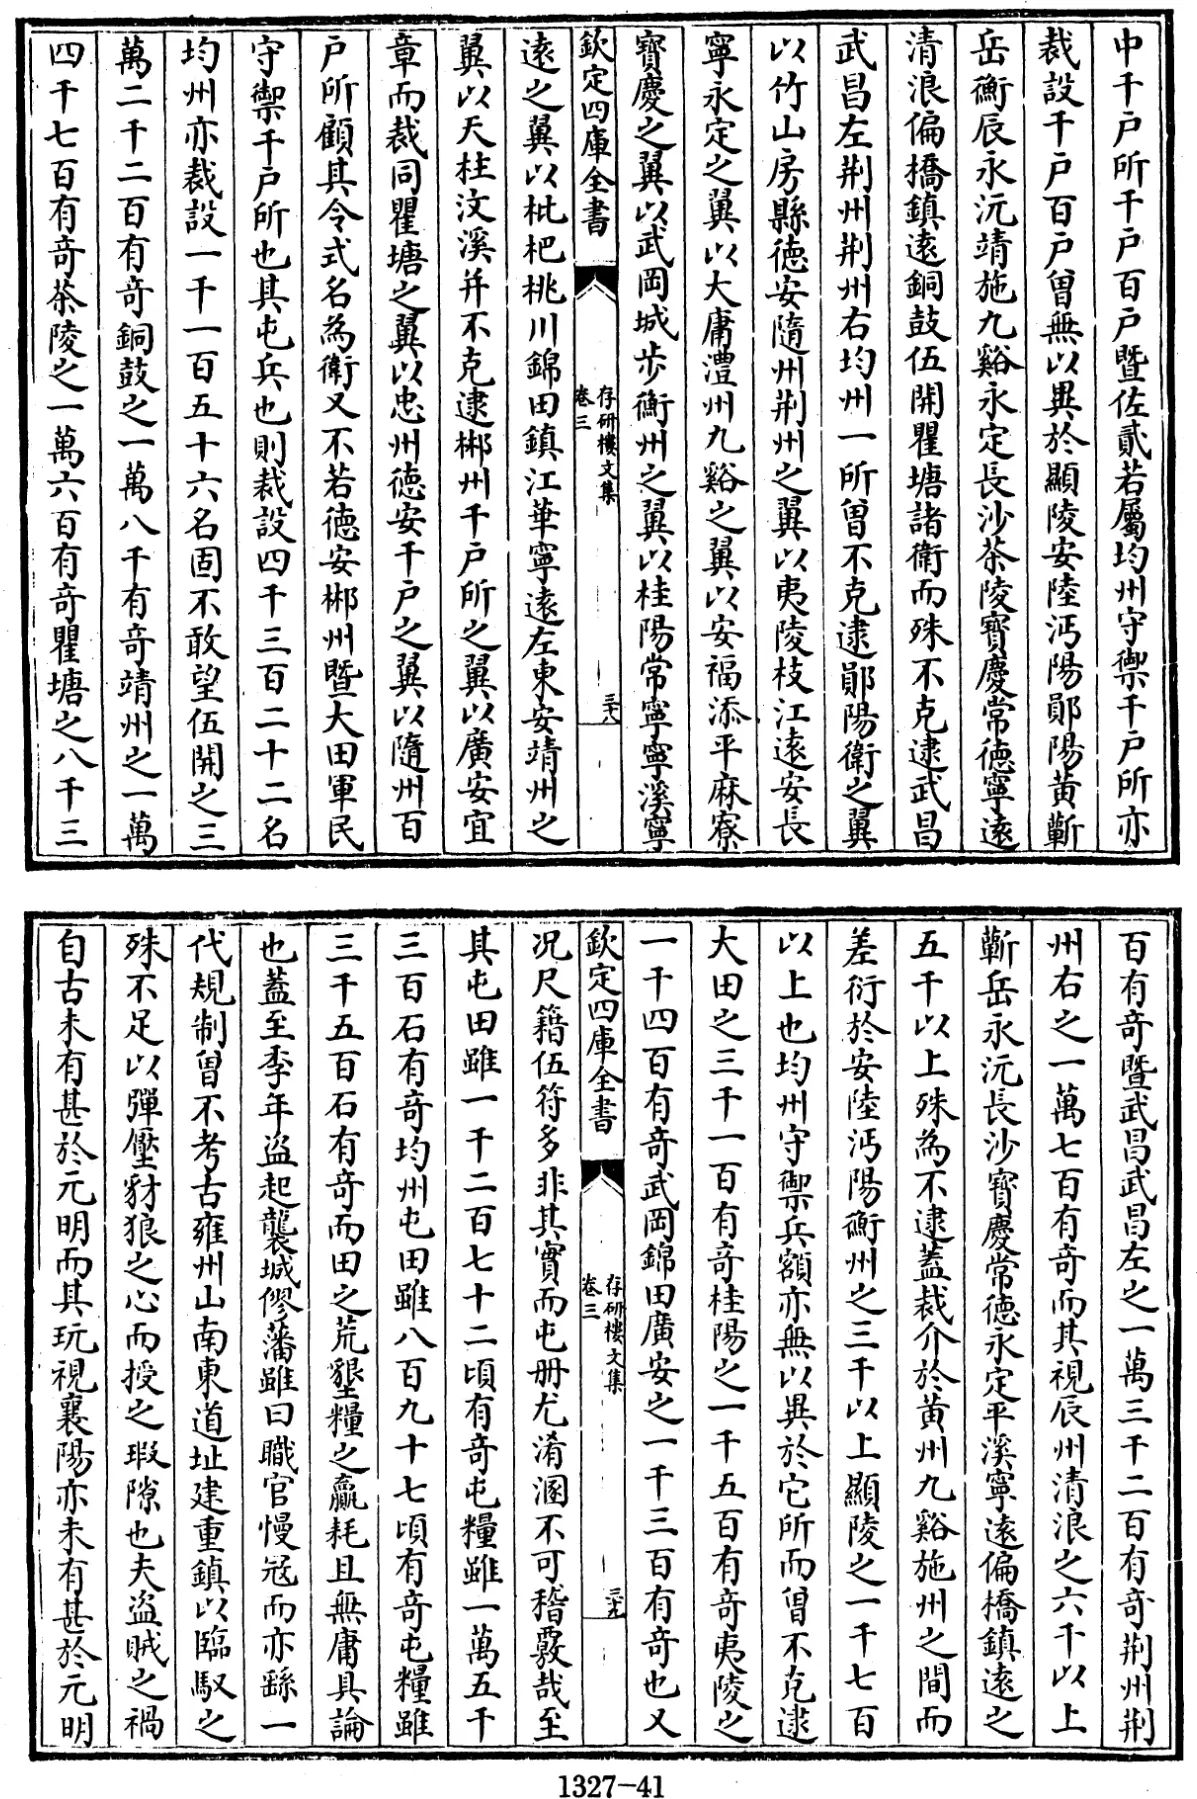 中千户所千户百户暨佐貳若屬均州守禦千户所亦
裁設千户百户曽無以異於顯陵安陸沔陽鄖陽黄蘄
岳衡辰永沅靖施九谿永定長沙茶陵寳慶常德寧遠
清浪偏橋鎮遠銅鼓伍開瞿塘諸衛而殊不克逮武昌
武昌左荆州荆州右均州一所曽不克逮鄖陽衛之翼
以竹山房縣德安隨州荆州之翼以夷陵枝江遠安長
寧永定之翼以大庸澧州九谿之翼以安福添平麻寮
寳慶之翼以武岡城步衡州之翼以桂陽常寧寧溪寧
欽定四庫全書
存研樓文集
卷三
三十八
遠之翼以枇杷桃川錦田鎮江華寧遠左東安靖州之
翼以天柱汶溪并不克逮郴州千户所之翼以廣安宜
章而裁同瞿塘之翼以忠州德安千户之翼以隨州百
户所顧其令式名為衛又不若德安郴州暨大田軍民
守禦千户所也其屯兵也則裁設四千三百二十二名
均州亦裁設一千一百五十六名固不敢望伍開之三
萬二千二百有奇銅鼓之一萬八千有奇靖州之一萬
四千七百有奇茶陵之一萬六百有奇瞿塘之八千三
百有奇暨武昌武昌左之一萬三千二百有奇荆州荆
州右之一萬七百有奇而其視辰州清浪之六千以上
蘄岳永沅長沙寳慶常德永定平溪寧遠偏橋鎮遠之
五千以上殊為不逮蓋裁介於黄州九谿施州之間而
差衍於安陸沔陽衡州之三千以上顯陵之一千七百
以上也均州守禦兵額亦無以異於它所而曽不克逮
大田之三千一百有奇桂陽之一千五百有奇夷陵之
一千四百有奇武岡錦田廣安之一千三百有奇也又
欽定四庫全書
存研樓文集
卷三
三十九
况尺籍伍符多非其實而屯册尤淆溷不可稽覈哉至
其屯田雖一千二百七十二頃有奇屯糧雖一萬五千
三百石有奇均州屯田雖八百九十七頃有奇屯糧雖
三千五百石有奇而田之荒墾糧之羸耗且無庸具論
也蓋至季年盗起襲城僇藩雖曰職官慢寇而亦繇一
代規制曽不考古雍州山南東道址建重鎮以臨馭之
殊不足以彈壓豺狼之心而授之瑕隙也夫盗賊之禍
自古未有甚於元明而其玩視襄陽亦未有甚於元明
1327-41